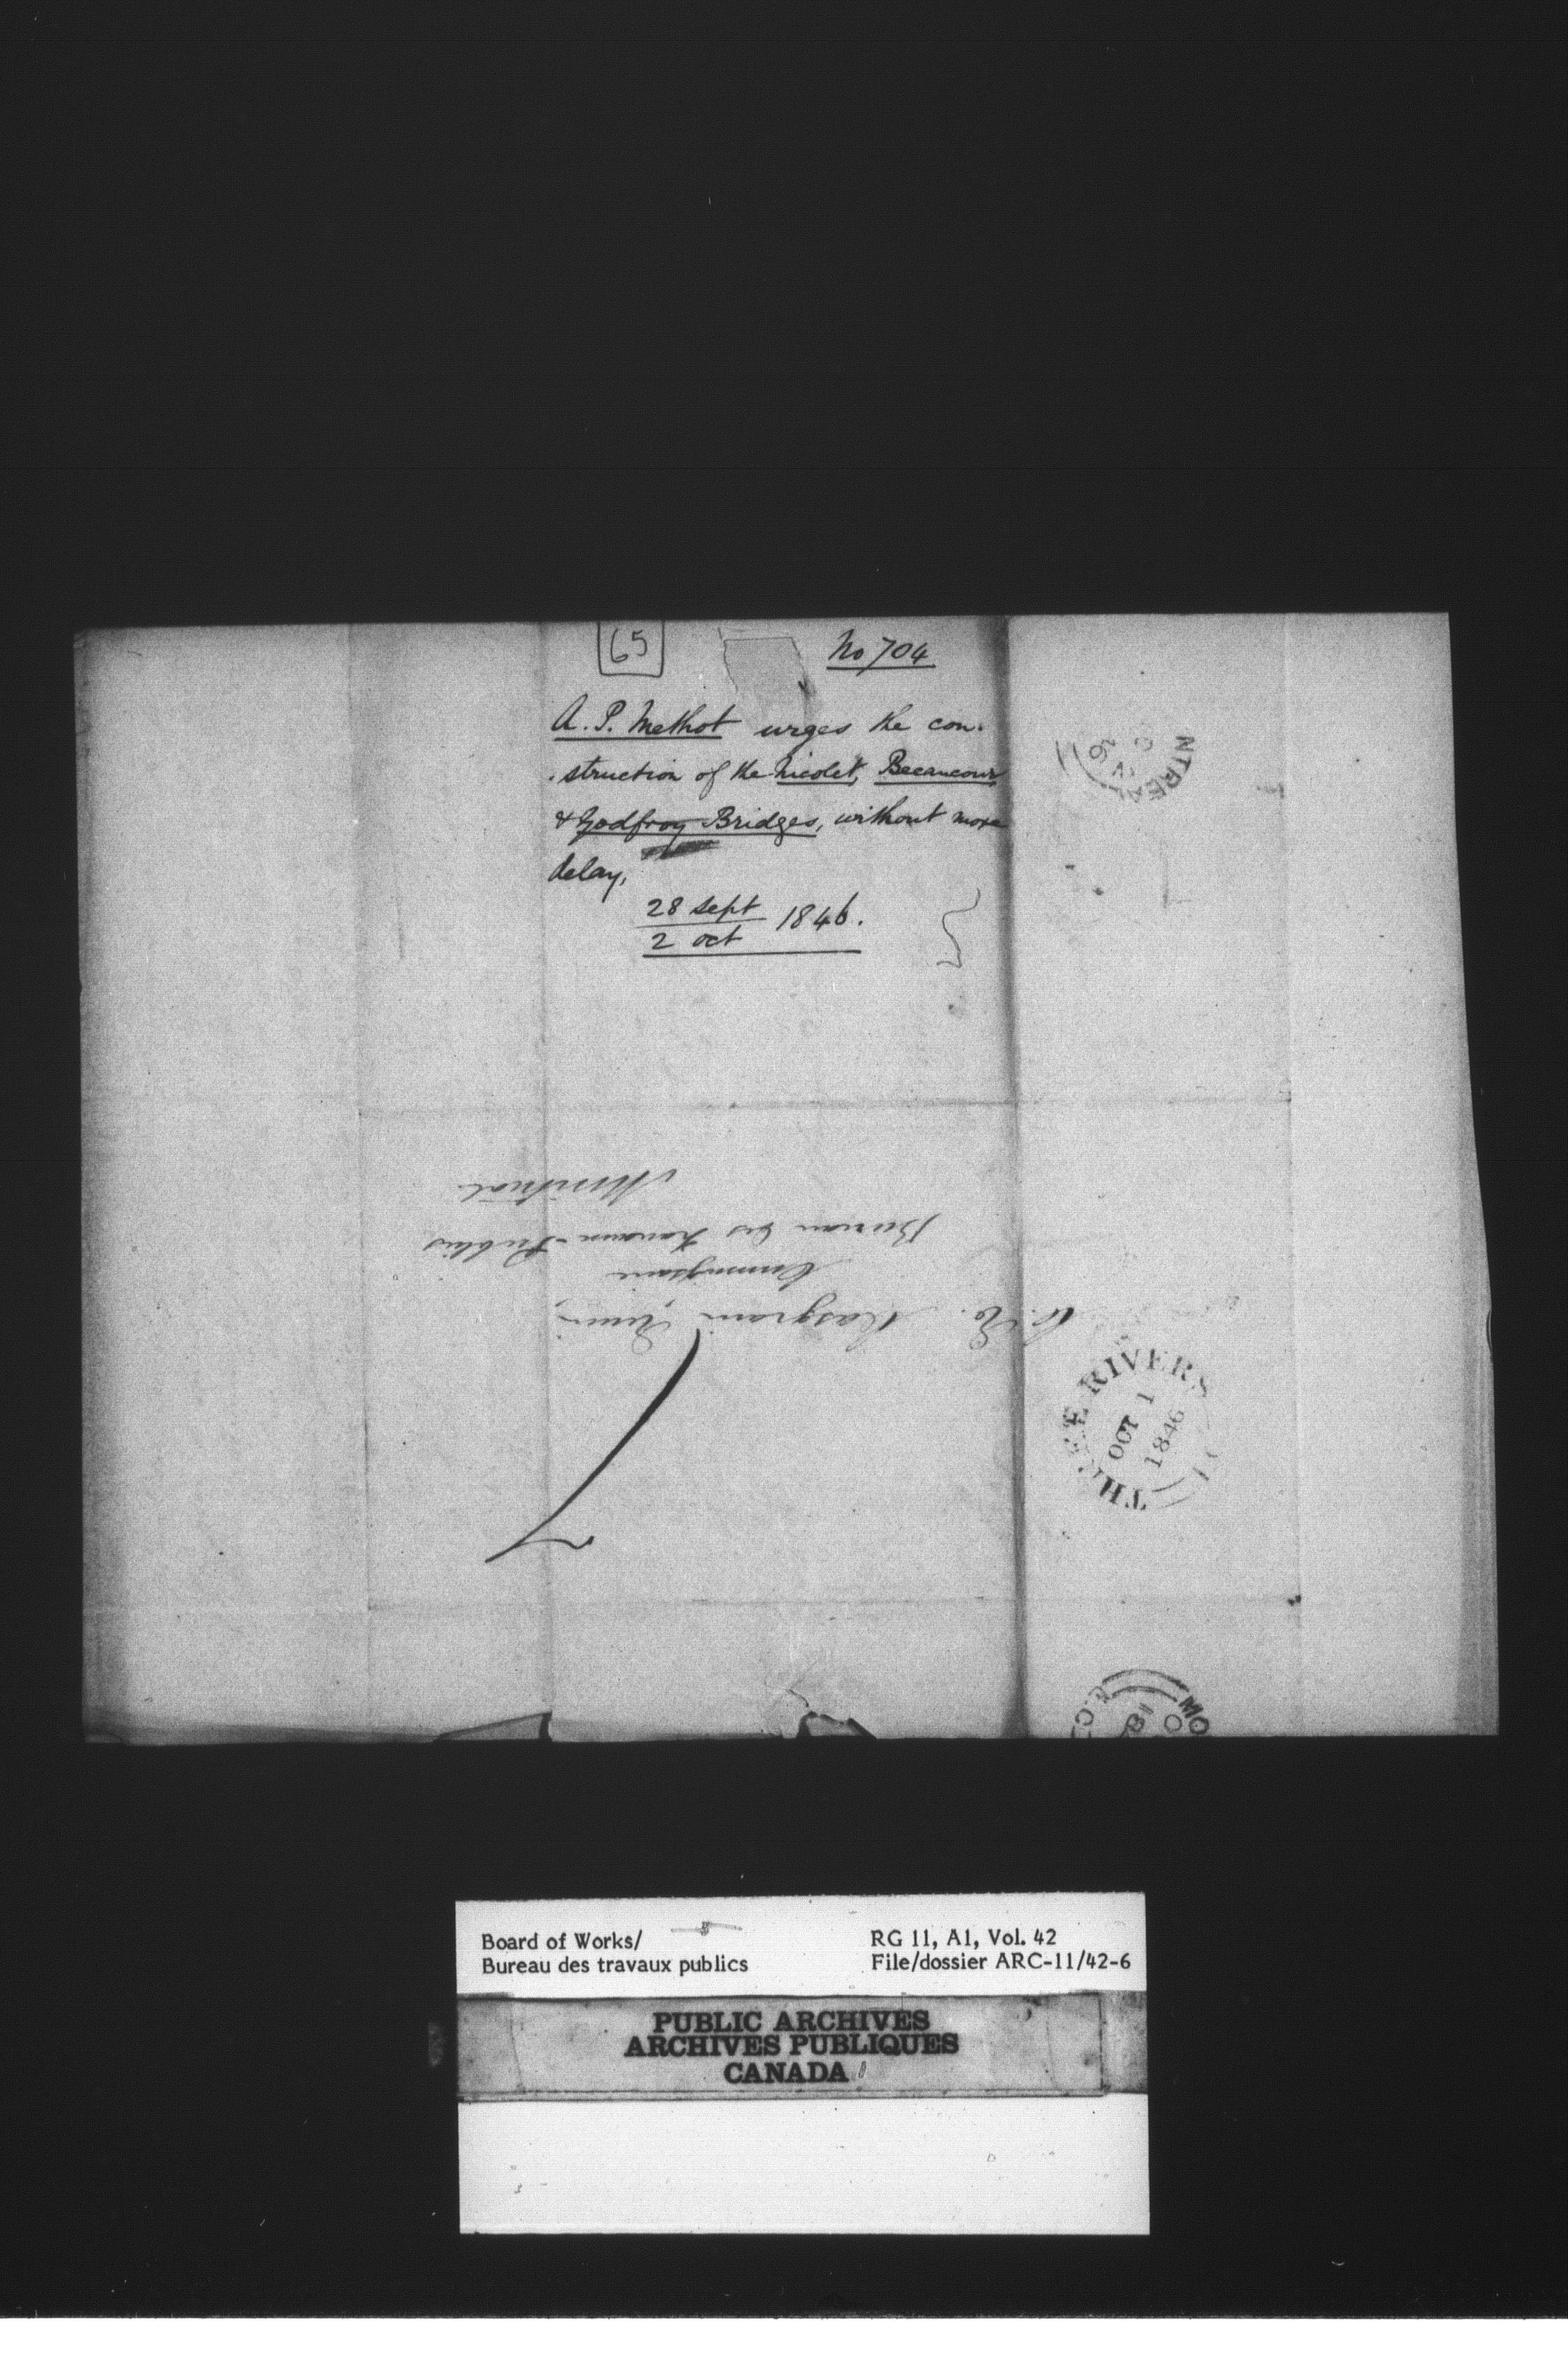 65
No 704
A. P. Methot urges the con-
-struction of the Nicolet, Becancour
& Godfroy Bridges, without more
delay,
28 sept
2 oct 1846.
NTREAL
C. E. Casgrain, Ecuier,
Commissaire
Bureau des Travaux-Publics
Montréal
THREE RIVERS
OCT 1
1846
MO
Board of Works/
Bureau des travaux publics
RG 11, A1, Vol. 42
File/dossier ARC-11/42-6
PUBLIC ARCHIVES
ARCHIVES PUBLIQUES
CANADA